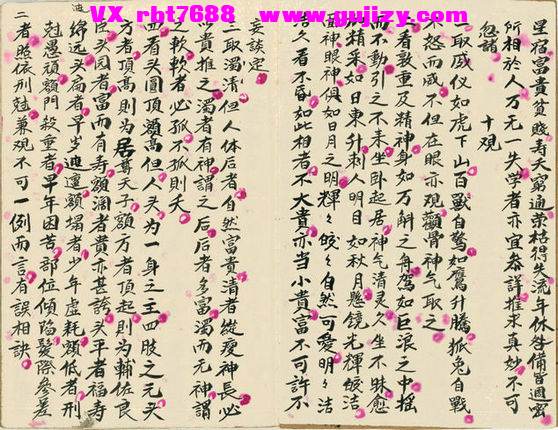 VX rbt7688 www.gujizy.com
星宿富貴貧賤壽夭窮通荣枯得失流年休咎備皆通寍
所相於人万无一失学者亦宜叅詳推求真妙不可
忽諸
十观
一取威仪如虎下山百獸自驚如鷹升騰狐兎自戰
不怒而威不但在眼亦观顴骨神气取之
二看敦重及精神身如万斛之舟駕如巨浪之中搖
而不動引之不来坐卧起居神气清灵人坐不昧愈
加精采如日東升刺人明目如秋月懸镜光輝皎洁
面神眼神俱如日月之明輝々皎々自然可愛明々洁
洁久看不昏如此相者不大貴亦当小貴富不可許不
妄談定
三取濁清但人体后者自然富貴清者縱瘦神長必
以貴推之濁者有神謂之后后者多富濁而无神謂
之軟軟者必孤不孤則夭
四看头圓頂額高但人头为一身之主四肢之元头
方者頂高則为居尊天子額方者頂起則为輔佐良
臣头园者富而有寿額濶者貴亦甚誇头平者福寿
绵远头扁者早岁迍邅額塌者少年虛耗額低者刑
尅愚頑額門殺重者早年困苦部位傾陷髮際參差
二者照依刑尅兼观不可一例而言有誤相訣
迪